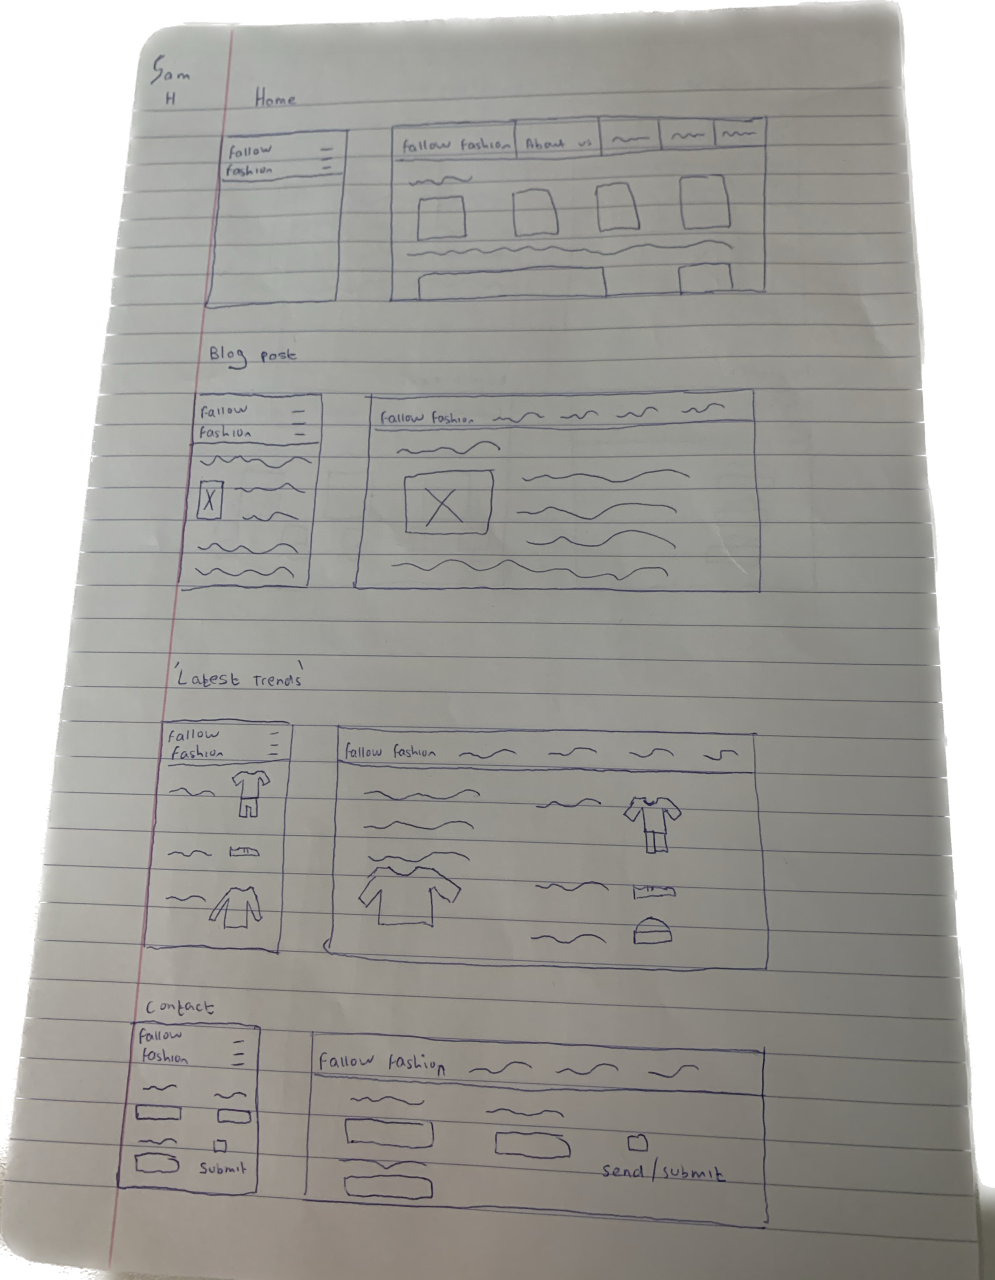 Sam
H
Home
Fallow
fashion
Fallow fashion
About us
Blog post
Fallow
fashion
Fallow fashion
'Latest Trends'
Fallow
fashion
Fallow fashion
Contact
Fallow
fashion
Fallow fashion
Submit
Send/submit